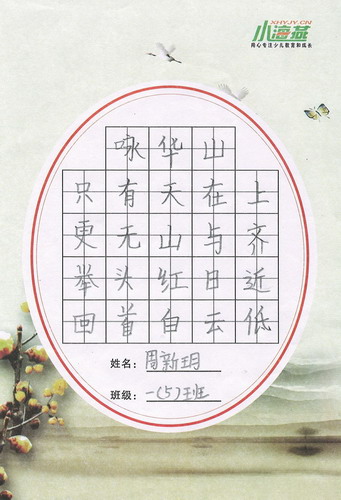 XHYJY.CN
小海燕
用心专注少儿教育和成长
咏华山
只有天在上
更无山与齐
举头红日近
回首白云低
姓名：周新玥
班级：一(5)班